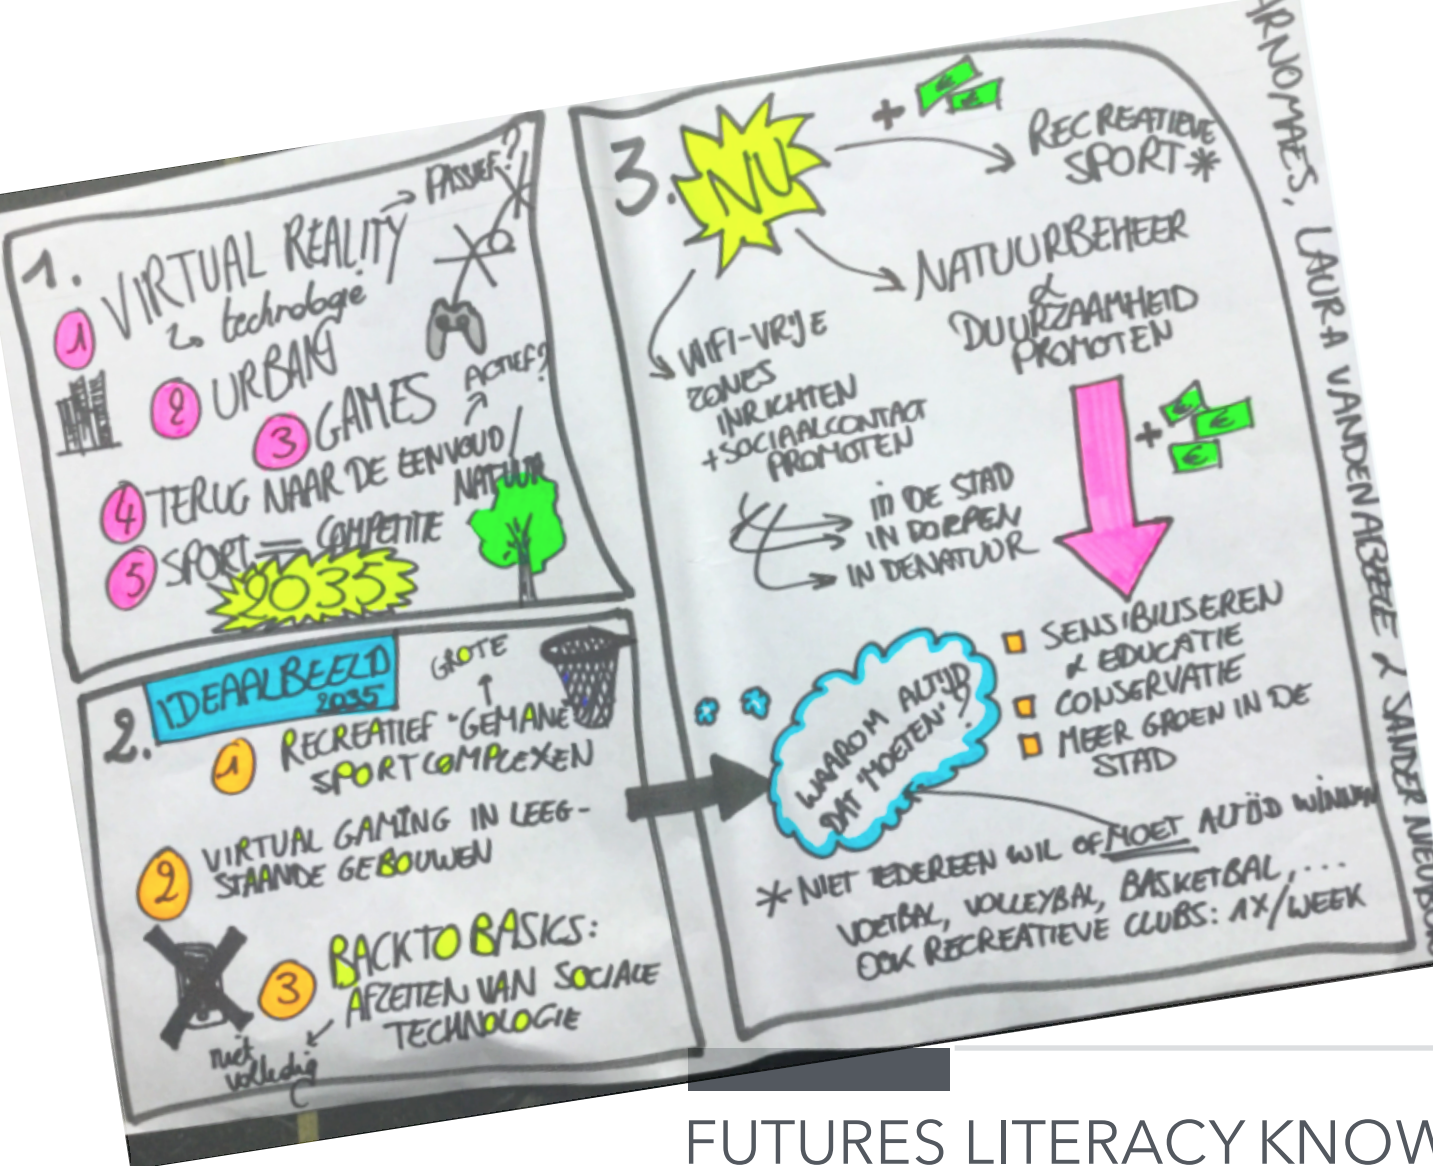 1.
1 VIRTUAL REALITY → PASSIEF?
↳ technologie
2 URBAN
3 GAMES
ACTIEF?
4 TERUG NAAR DE EENVOUD /
NATUUR
5 SPORT = COMPETITIE
2035
2.
IDEAALBEELD
2035
GROTE
1 RECREATIEF "GEMANE
SPORTCOMPLEXEN
2 VIRTUAL GAMING IN LEEG-
STAANDE GEBOUWEN
3 BACK TO BASICS:
AFZETTEN VAN SOCIALE
TECHNOLOGIE
niet
volledig
3.
NU
+ € €
RECREATIEVE
SPORT*
NATUURBEHEER
&
DUURZAAMHEID
PROMOTEN
WIFI-VRIJE
ZONES
INRICHTEN
+SOCIAALCONTACT
PROMOTEN
in DE STAD
IN DORPEN
IN DENATUUR
+ € € €
SENSIBILISEREN
& EDUCATIE
CONSERVATIE
MEER GROEN IN DE
STAD
WAAROM ALTIJD
DAT 'MOETEN'?
* NIET IEDEREEN WIL OF MOET ALTIJD WINNEN
VOETBAL, VOLLEYBAL, BASKETBAL,...
OOK RECREATIEVE CLUBS: 1X/WEEK
ARNOMAES, LAURA VANDENABEELE & SANDER
FUTURES LITERACY KNOW